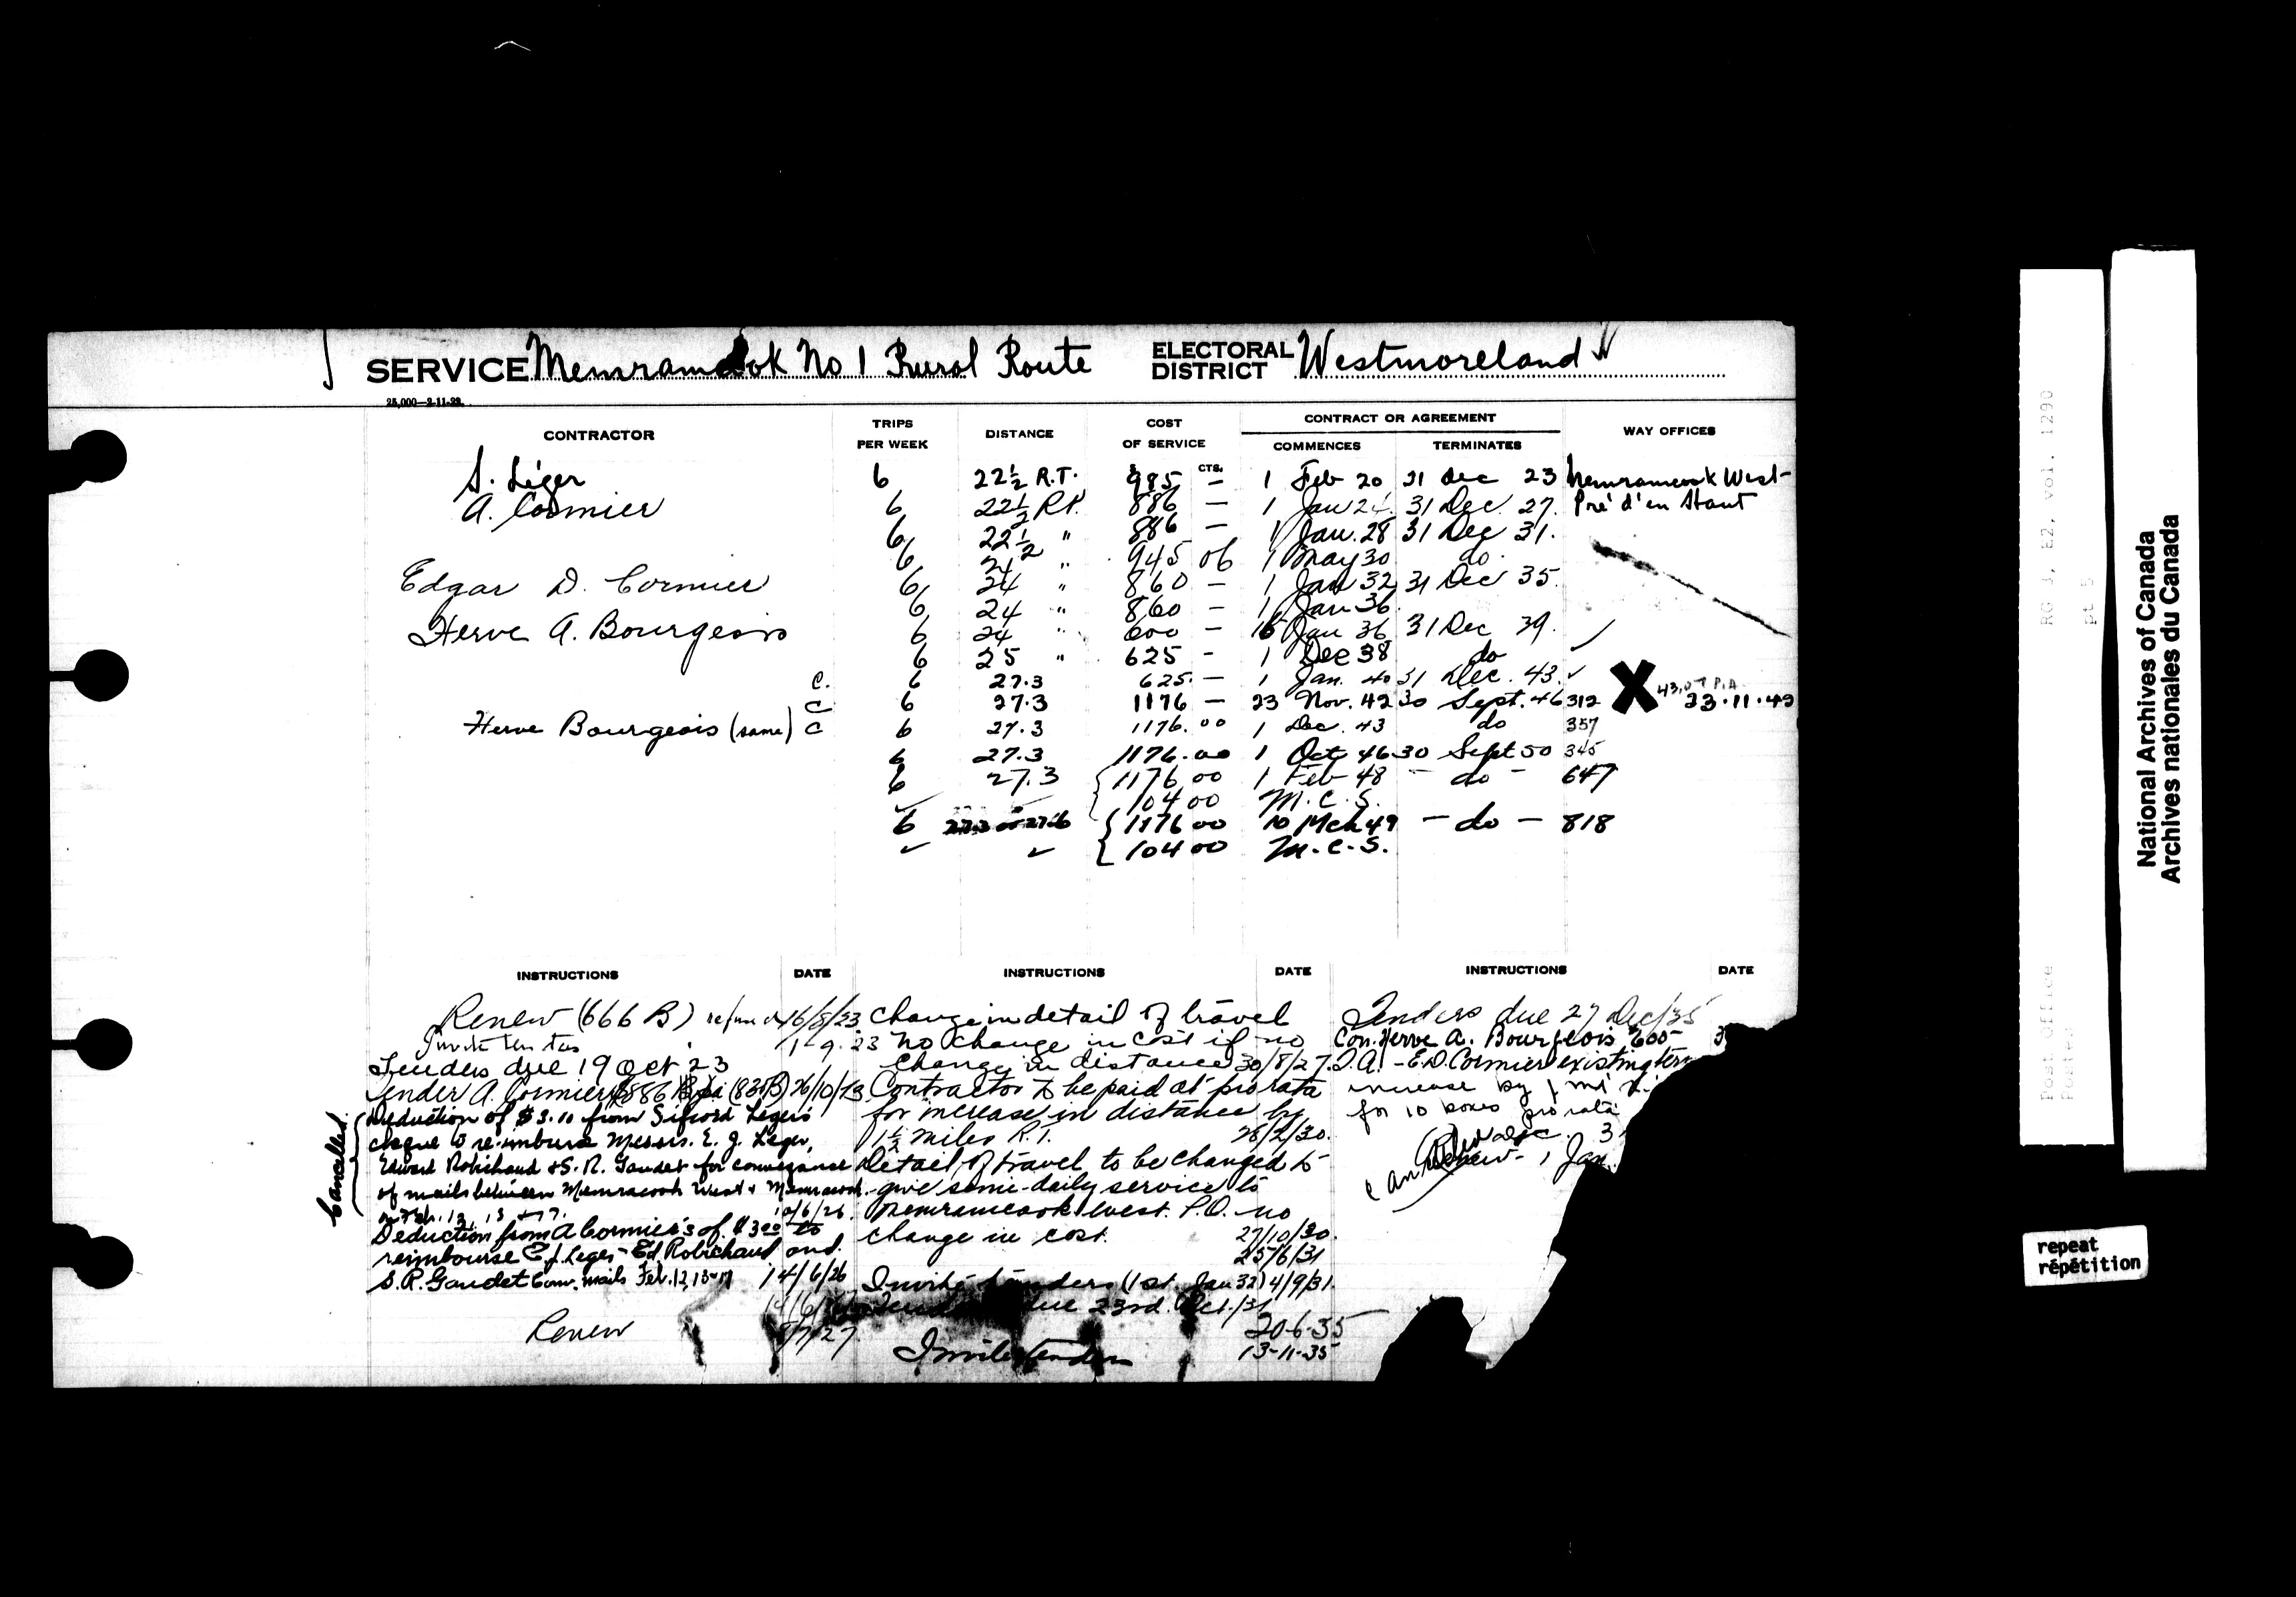 SERVICE Memramcook No 1 Rural Route ELECTORAL DISTRICT Westmoreland
25,000—2-11-29.
CONTRACTOR TRIPS PER WEEK DISTANCE COST OF SERVICE CONTRACT OR AGREEMENT COMMENCES TERMINATES WAY OFFICES
$ CTS.
S. Léger 6 22½ R.T. 985 — 1 Feb 20 31 Dec 23 Memramcook West-
A. Cormier 6 22½ R.T. 886 — 1 Jan 24 31 Dec 27. Pré d'en Haut
6 22½ " 886 — 1 Jan. 28 31 Dec 31.
6 24 " 945 06 1 May 30 do.
Edgar D. Cormier 6 24 " 860 — 1 Jan 32 31 Dec 35.
6 24 " 860 — 1 Jan 36
Herve A. Bourgeois 6 24 " 600 — 16 Jan 36 31 Dec 39.
6 25 " 625 - 1 Dec 38 do
C. 6 27.3 625. — 1 Jan. 40 31 Dec. 43.
C 6 27.3 1176 — 23 Nov. 42 30 Sept. 46 312 X 23.11.42
Herve Bourgeois (same) C 6 27.3 1176.00 1 Dec. 43 do 357
6 27.3 1176.00 1 Oct 46 30 Sept 50 345
6 27.3 { 1176 00 1 Feb 48 - do - 647
104 00 M.C.S.
6 27.6 { 1176 00 10 Mch 49 - do - 818
{ 104 00 M.C.S.
INSTRUCTIONS DATE INSTRUCTIONS DATE INSTRUCTIONS DATE
Renew (666 B) 16/8/23
Invite tenders 1 9. 23
Tenders due 19 Oct 23
Tender A. Cormier $886 (835B) 26/10/23
Cancelled
Deduction of $3.10 from Siford Leger's
cheque to re-imburse Messrs. E. J. Leger,
Edward Robichaud & S. R. Gaudet for conveyance
of mails between Memramcook West & Memramcook
on Feb. 12, 13 & 17. 10/6/26.
Deduction from A Cormier's of $3.00 to
reimbourse E J. Leger - Ed Robichaud and
S. R. Gaudet Conv. mails Feb. 12, 13 & 17 14/6/26
Renew /7/27
Change in detail of travel
no change in cost if no
change in distance 30/8/27.
Contractor to be paid at pro rata
for increase in distance by
1½ miles R.T. 28/2/30.
Detail of travel to be changed to
give semi-daily service to
Memramcook West. P.O. no
change in cost. 27/10/30.
25/6/31
Invite tenders (1st. Jan 32) 4/9/31.
due 23rd. Oct./31
20-6-35
Invite tenders 13-11-35
Tenders due 27 Dec/35
Con. Herve A. Bourgeois $600-
T.A. - E.D. Cormier existing
increase by 1 mi
for 10 boxes pro rata
Renew - 1 Jan.
National Archives of Canada
Archives nationales du Canada
RG 3, E2, vol. 1290
pt 5
Post Office
Postes
repeat
répétition